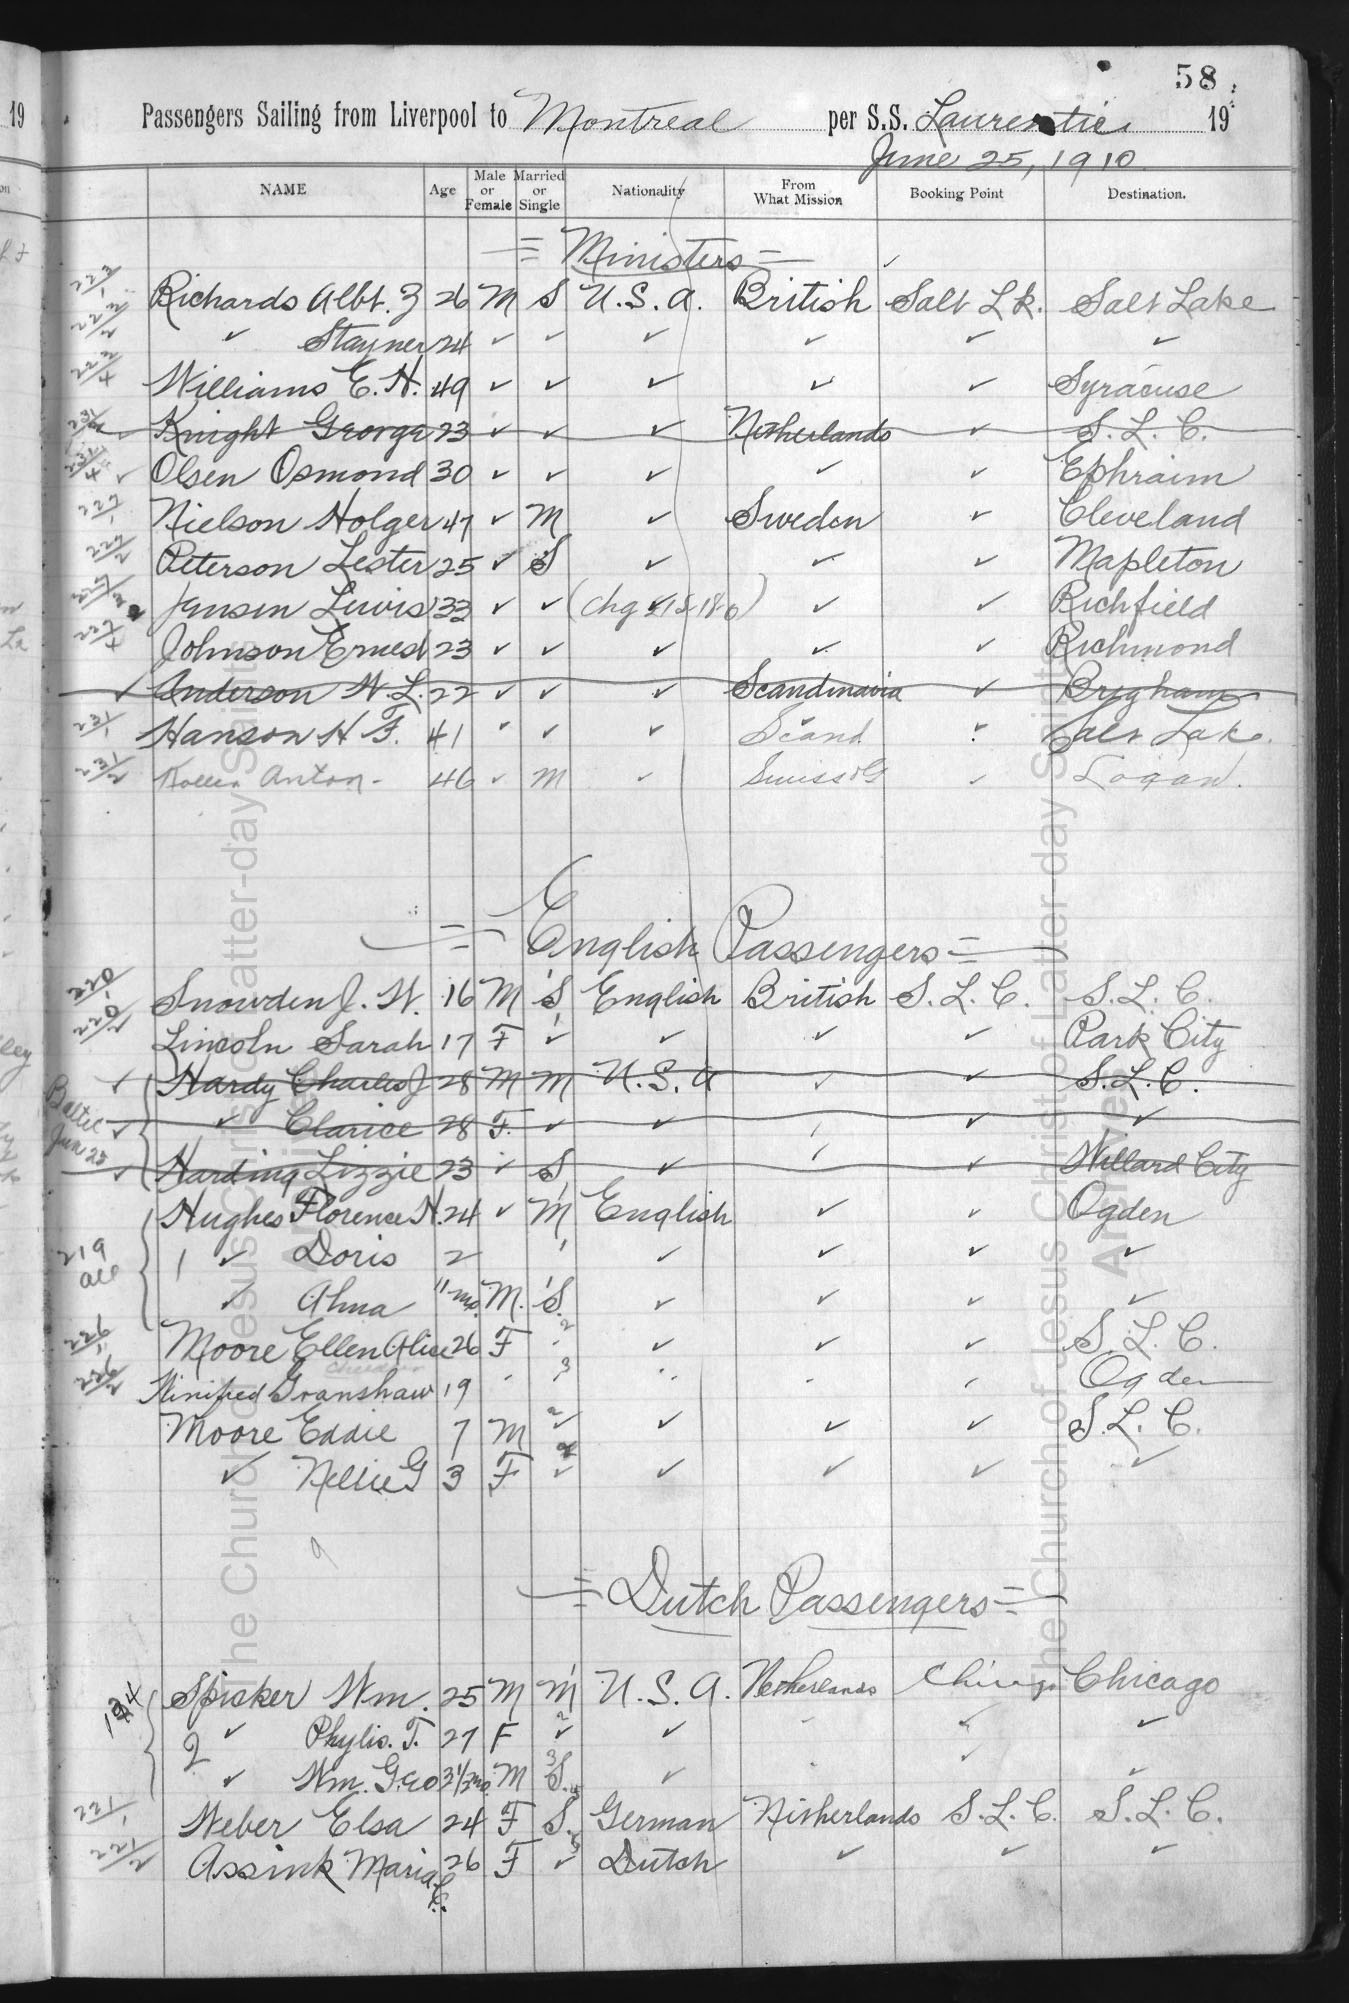 58
19
Passengers Sailing from Liverpool to Montreal per S.S. Laurentic 19
June 25, 1910
NAME Age Male or Female Married or Single Nationality From What Mission Booking Point Destination.
= Ministers =
223/1 Richards Albt. Z 26 M S U.S.A. British Salt Lk. Salt Lake
223/2 ✓ Stayner 24 ✓ ✓ ✓ ✓ ✓ ✓
223/4 Williams E. H. 49 ✓ ✓ ✓ ✓ ✓ Syracuse
Knight George 23 ✓ ✓ ✓ Netherlands ✓ S. L. C.
231/4 ✓ Olsen Osmond 30 ✓ ✓ ✓ ✓ ✓ Ephraim
227/1 Nielson Holger 47 ✓ M ✓ Sweden ✓ Cleveland
227/2 Peterson Lester 25 ✓ S ✓ ✓ ✓ Mapleton
227/3 Jensen Lewis 33 ✓ ✓ (chg ✓ ✓ Richfield
227/4 Johnson Ernest 23 ✓ ✓ ✓ ✓ ✓ Richmond
✓ Anderson W. L. 22 ✓ ✓ ✓ Scandinavia ✓ Brigham
231/1 Hanson H F. 41 ✓ ✓ ✓ Scand ✓ Salt Lake.
231/2 Anton 46 ✓ M ✓ Swiss & G ✓ Logan.
= English Passengers =
220/1 Snowden J. W. 16 M S English British S. L. C. S. L. C.
220/2 Lincoln Sarah 17 F ✓ ✓ ✓ ✓ Park City
✓ Hardy Charles J 28 M M U.S.A ✓ ✓ S.L.C.
Baltic ✓ ✓ Clarice 28 F. ✓ ✓ ✓ ✓ ✓
June 25 ✓ Harding Lizzie 23 ✓ S ✓ ✓ ✓ Willard City
Hughes Florence H. 24 ✓ M English ✓ ✓ Ogden
219 all 1 ✓ Doris 2 ✓ ✓ ✓ ✓
✓ Alma 11 mo. M. S. ✓ ✓ ✓ ✓
226/1 Moore Ellen Alice 26 F ✓ ✓ ✓ S. L. C.
226/2 Winifred Granshaw 19 Ogden
Moore Eddie 7 M ✓ ✓ ✓ ✓ S. L. C.
✓ Nellie G 3 F ✓ ✓ ✓ ✓ ✓
9
= Dutch Passengers =
Spicker Wm. 25 M M U.S.A. Netherlands Chicago Chicago
2 ✓ Phylis. T. 27 F ✓ ✓ ✓ ✓
✓ Wm. Geo 3 1/2 mo. M S. ✓ ✓ ✓
221/1 Weber Elsa 24 F S. German Netherlands S. L. C. S. L. C.
221/2 Assink Maria C. 26 F ✓ Dutch ✓ ✓ ✓
The Church of Jesus Christ of Latter-day Saints
Archives
The Church of Jesus Christ of Latter-day Saints
Archives